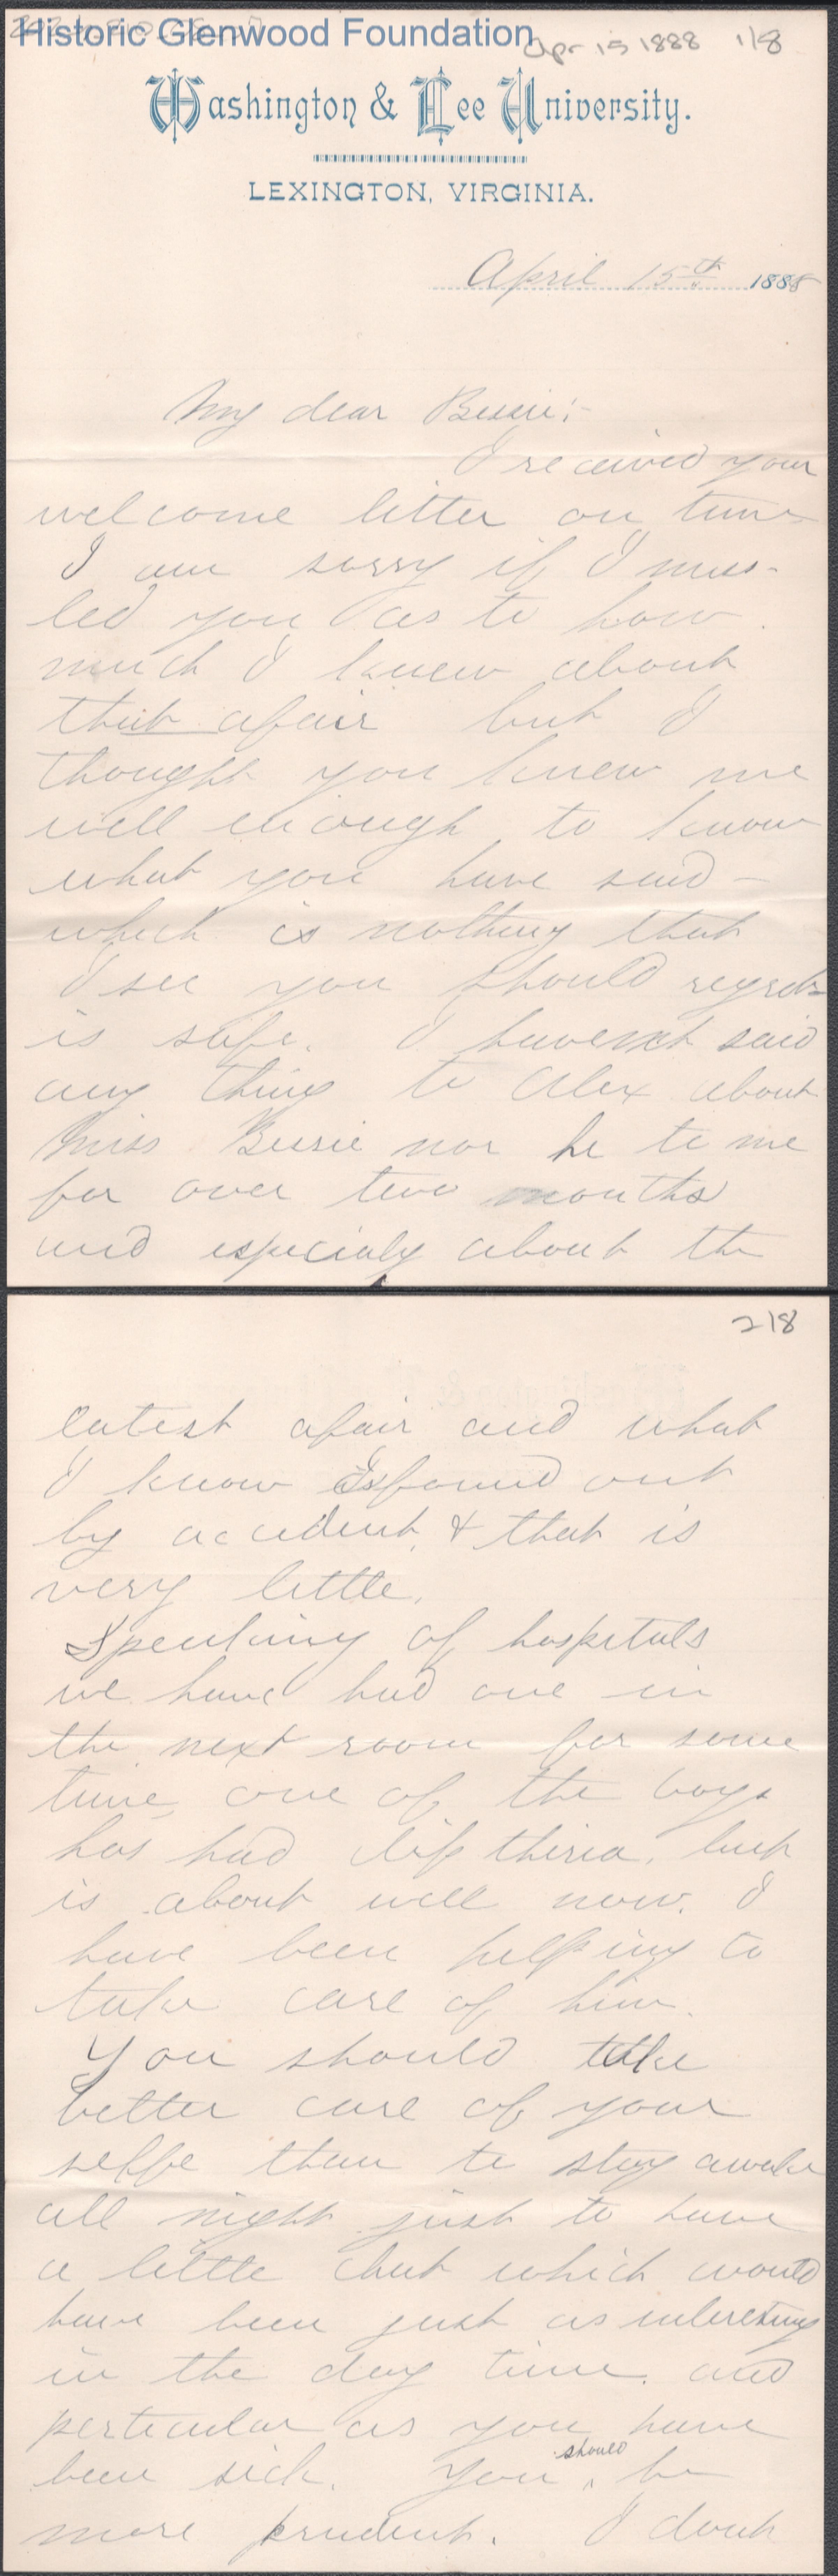 Historic Glenwood Foundation
Apr 15 1888 1/8
Washington & Lee University.
LEXINGTON, VIRGINIA.
April 15th 1888
My dear Bessie;-
I received your
welcome letter on time
I am sorry if I miss-
led you as to how
much I knew about
that afair but I
thought you knew me
well enough to know
what you have said -
which is nothing that
I see you should regret-
is safe. I havent said
any thing to Alex about
Miss Bessie nor he to me
for over two months
and especialy about the
2/8
latest afair and what
I know I found out
by accident, & that is
very little.
Speaking of hospitals
we have had one in
the next room for some
time, one of the boys
has had diptheria, but
is about well now. I
have been helping to
take care of him.
You should take
better care of your
selfe than to stay awake
all night just to have
a little chat which would
have been just as interesting
in the day time. and
perticular as you have
been sick. You should be
more prudent. I dont